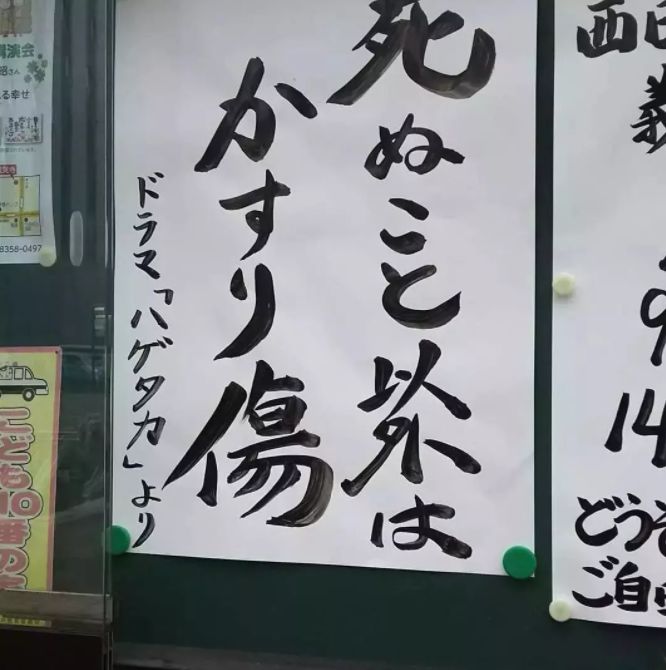 死ぬこと以外は
かすり傷
ドラマ「ハゲタカ」より
どう
ご自
14
講演会
る幸せ
8358-0497
こども110番の